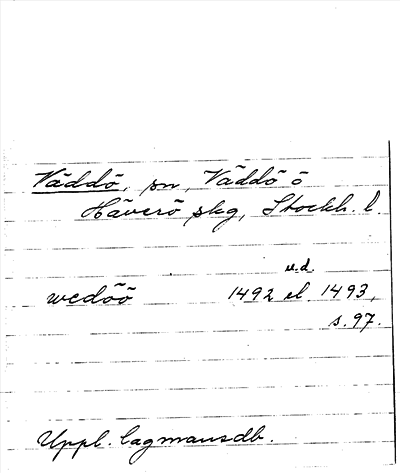 Väddö, sn, Väddö ö
Häverö skg, Stockh. l.
u.d.
wedöö 1492 el. 1493,
s. 97.
Uppl. lagmansdb.